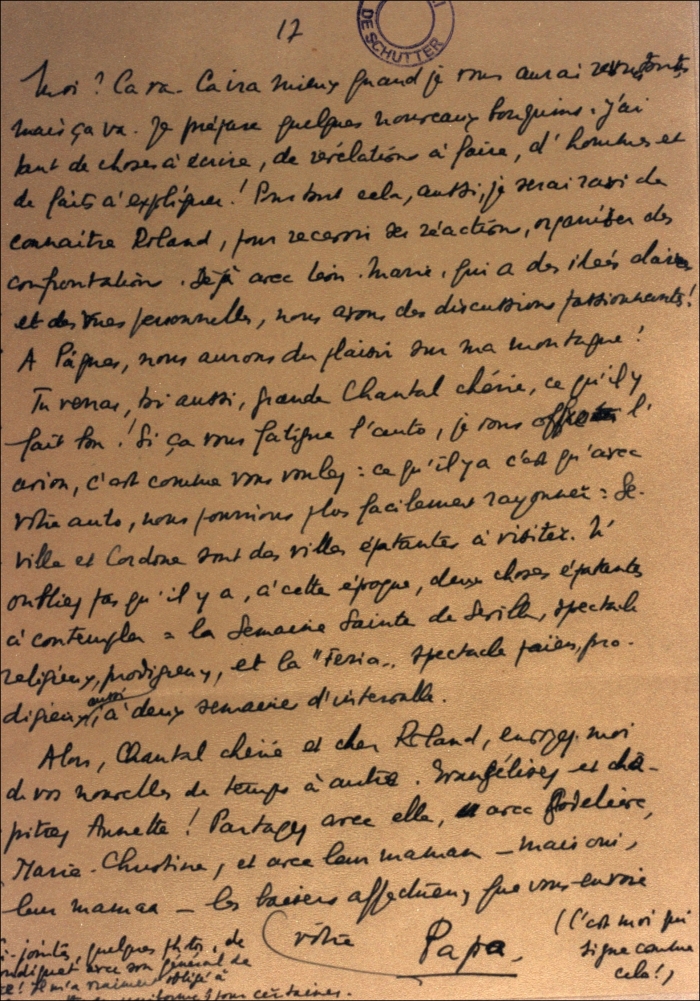 17
DE SCHUTTER
Moi ? Ca va. Ca ira mieux quand je vous aurai revus,
mais ça va. Je prépare quelques nouveaux bouquins. J'ai
tant de choses à écrire, de révélations à faire, d'hommes et
de faits à expliquer ! Pour tout cela, aussi, je serai ravi de
connaître Roland, pour recevoir ses réactions, organiser des
confrontations. Déjà avec Léon-Marie, qui a des idées claires
et des vues personnelles, nous avons des discussions passionnantes !
A Pâques, nous aurons du plaisir sur ma montagne !
Tu verras, toi aussi, grande Chantal chérie, ce qu'il y
fait bon ! Si ça vous fatigue l'auto, je vous offre l'
avion, c'est comme vous voulez : ce qu'il y a c'est qu'avec
votre auto, nous pourrions plus facilement rayonner : Sé-
ville et Cordoue sont des villes épatantes à visiter. N'
oubliez pas qu'il y a, à cette époque, deux choses épatantes
à contempler : la Semaine Sainte de Séville, spectacle
religieux, prodigieux, et la "Feria", spectacle païen, pro-
digieux, aussi, à deux semaines d'intervalle.
Alors, Chantal chérie et cher Roland, envoyez-moi
de vos nouvelles de temps à autre. Evangélisez et cha-
pitrez Annette ! Partagez avec elle, avec Godelieve,
Marie-Christine, et avec leur maman – mais oui,
leur maman – les baisers affectueux que vous envoie
votre Papa. (C'est moi qui
signe comme
cela !)
Ci-joints, quelques photos, de
avec son général de
Il m'a vraiment obligé à
uniforme pour certaines.